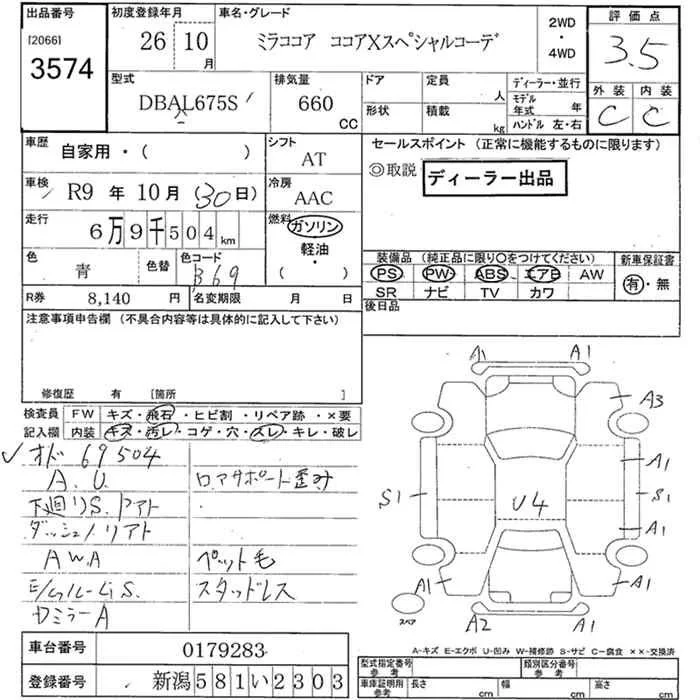 出品番号
[2066]
3574
初度登録年月
26 10
月
車名・グレード
ミラココア ココアXスペシャルコーデ
2WD
・
4WD
評価点
3.5
外装 内装
C C
型式
DBAL675S
排気量
660
CC
ドア
形状
定員
人
積載
kg
ディーラー・並行
モデル
年式 年
ハンドル 左・右
車歴
自家用・( )
シフト
AT
車検
R9 年 10月 (30日)
冷房
AAC
走行
6万9千504km
燃料
ガソリン
軽油・
( )
色
青
色替
色コード
B69
R券
8,140 円
名変期限 月 日
セールスポイント (正常に機能するものに限ります)
◎取説
ディーラー出品
装備品 (純正品に限り○をつけてください)
PS PW ABS エアB AW
SR ナビ TV カワ
新車保証書
有・無
後日品
注意事項申告欄 (不具合内容等は具体的に記入して下さい)
修復歴 有 [箇所 ]
検査員
記入欄
FW キズ・飛石・ヒビ割・リペア跡・×要
内装 キズ・汚レ・コゲ・穴・スレ・キレ・破レ
✓オド 69504
A.U.
下廻りS.アト
ダッシュノリアト
AWA
ロアサポート歪み
ペット毛
スタッドレス
A1 A1
A3
A1
S1
S1
U4
A1
A1
A1
A2
スペア
A-キズ E-エクボ U-凹み W-補修跡 S-サビ C-腐食 ××-交換済
車台番号
0179283
登録番号
新潟581い2303
型式指定番号
参考
類別区分番号
参考
車庫証明用
参考
長さ cm 幅 cm 高さ cm